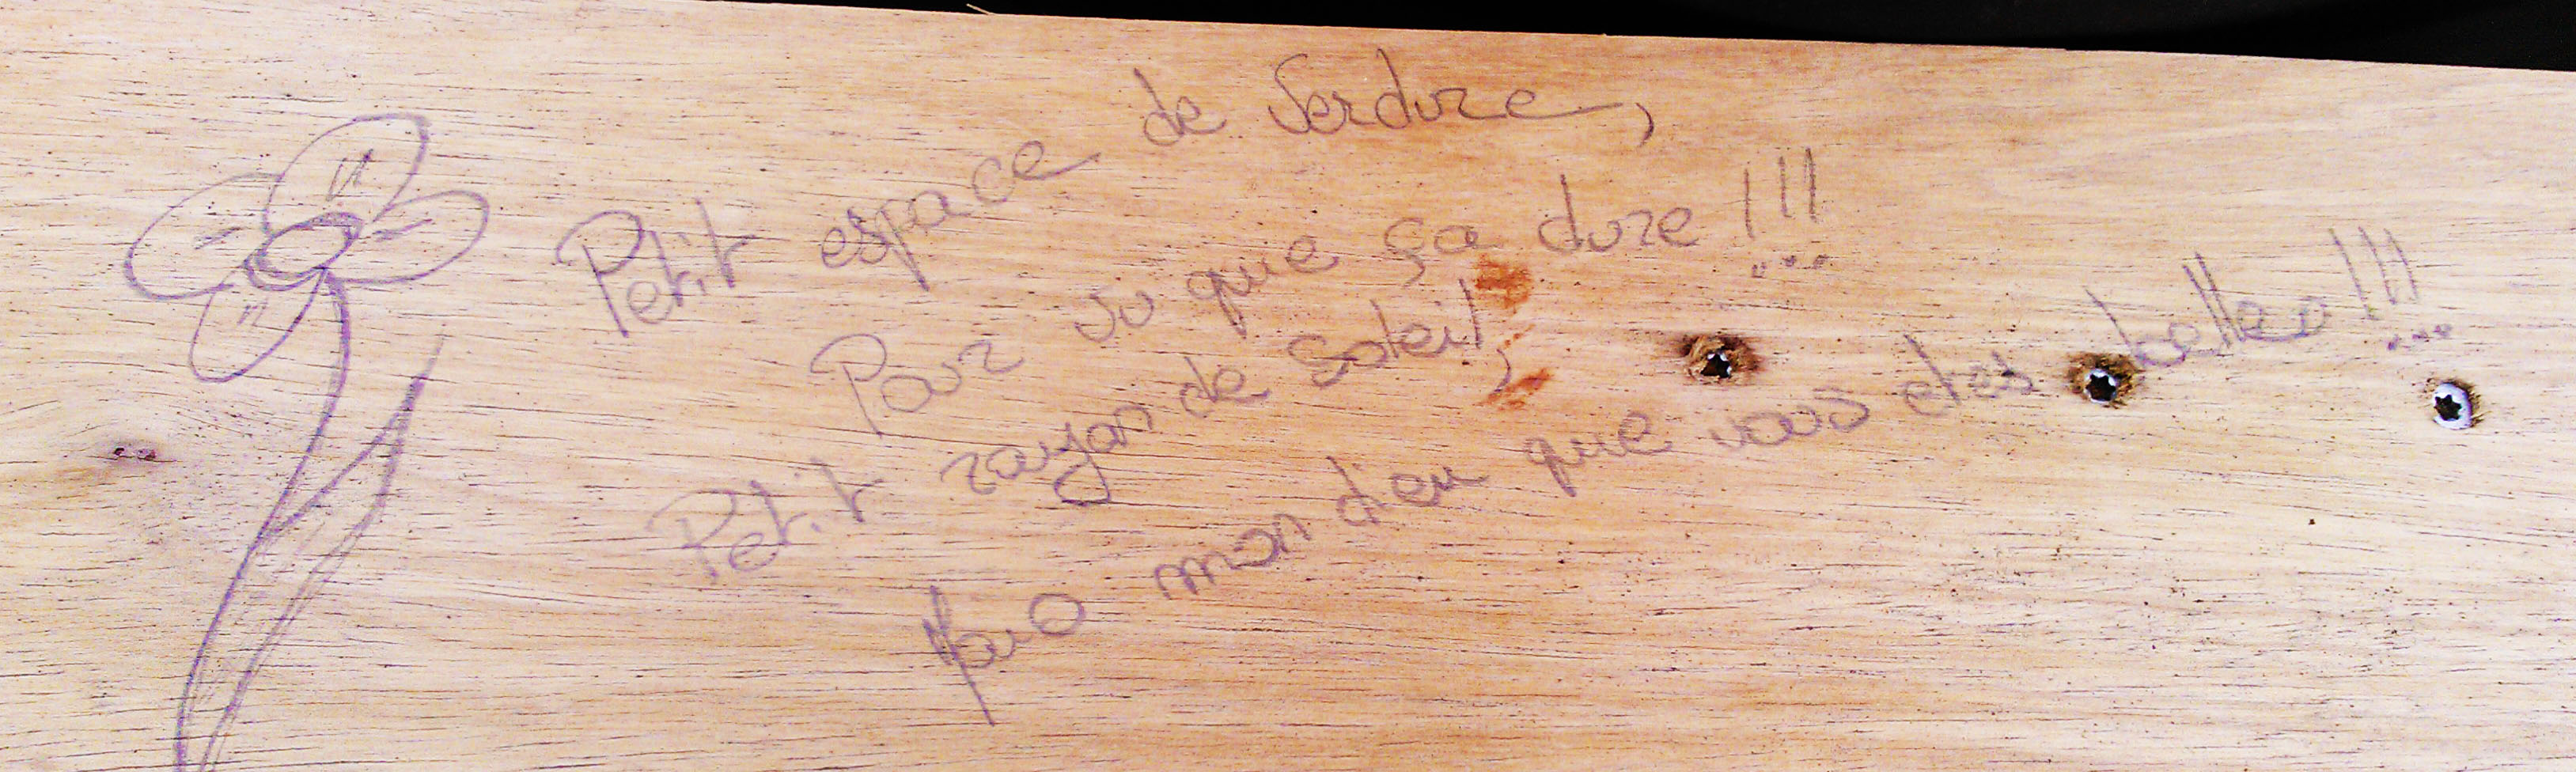 Petit espace de verdure,
Pour vu que ça dure !!!
Petit rayon de soleil,
Mais mon dieu que vous etes belles !!!